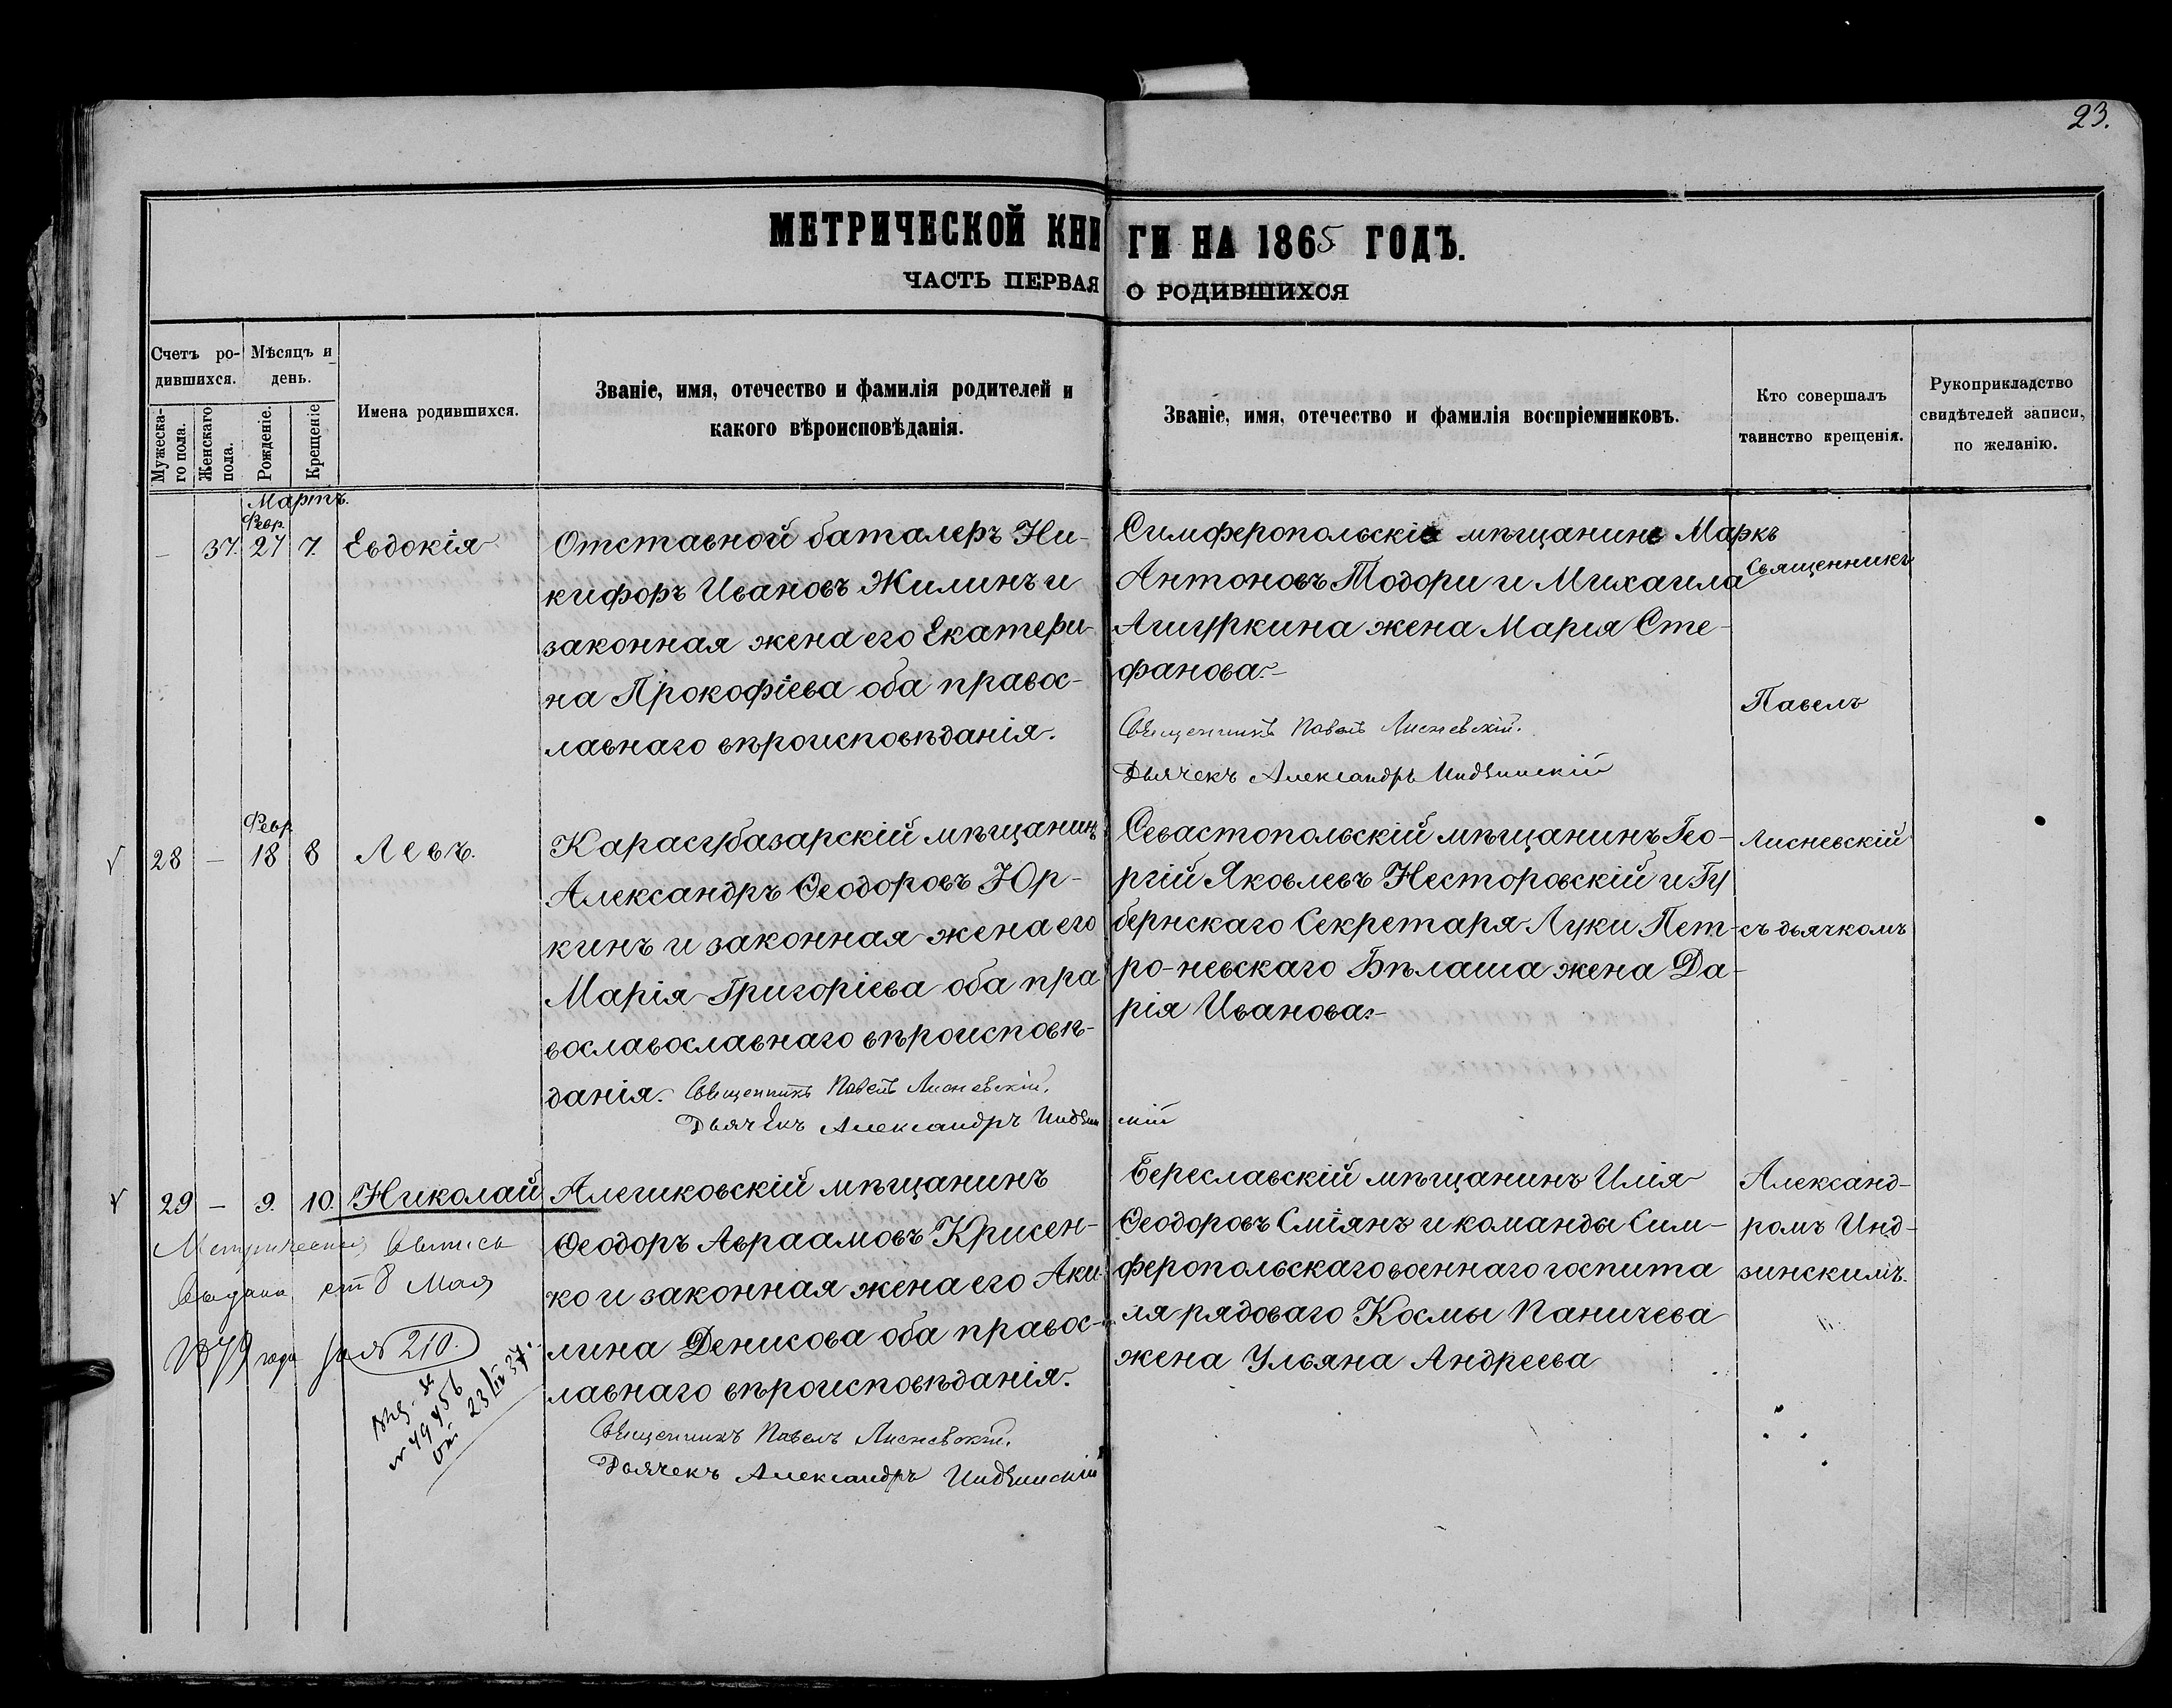 23.
МЕТРИЧЕСКОЙ КНИГИ НА 1865 ГОДЪ.
ЧАСТЬ ПЕРВАЯ О РОДИВШИХСЯ
Счетъ ро-
дившихся.
Мѣсяцъ и
день.
Мужеска-
го пола.
Женскаго
пола.
Рожденіе.
Крещеніе
Имена родившихся.
Званіе, имя, отечество и фамилія родителей и
какого вѣроисповѣданія.
Званіе, имя, отечество и фамилія воспріемниковъ.
Кто совершалъ
таинство крещенія.
Рукоприкладство
свидѣтелей записи,
по желанію.
Мартъ.
Февр.
– 37. 27 7. Евдокія
Отставной баталеръ Ни-
кифоръ Ивановъ Жилинъ и
законная жена его Екатери-
на Прокофіева оба правос-
лавнаго вѣроисповѣданія.
Симферопольскіе мѣщанине Маркъ
Антоновъ Тодори и Михаила
Агигуркина жена Марія Сте-
фанова.–
Священникъ Павелъ Лисневскій.
Дьячекъ Александръ Индзинскій
Священникъ
Павелъ
Февр
28 – 18 8 Левъ.
Карасубазарскій мѣщанинъ
Александръ Ѳеодоровъ Юр-
кинъ и законная жена его
Марія Григоріева оба пра
вославославнаго вѣроисповѣ-
данія. Священникъ Павелъ Лисневскій.
Дьячекъ Александръ Индзинскій
Севастопольскій мѣщанинъ Гео-
ргій Яковлевъ Несторовскій и Гу
бернскаго Секретаря Луки Пет-
ро-невскаго Бѣлаша жена Да-
рія Иванова.–
Лисневскій
съ дьячкомъ
29 – 9. 10. Николай
Алешковскій мѣщанинъ
Ѳеодоръ Авраамовъ Крисен-
ко и законная жена его Аки-
лина Денисова оба правос-
лавнаго вѣроисповѣданія.
Священникъ Павелъ Лисневскій.
Дьячекъ Александръ Индзинскій
Береславскій мѣщанинъ Илія
Ѳеодоровъ Сміянъ и команды Сим-
феропольскаго военнаго госпита
ля рядоваго Космы Паничева
жена Ульяна Андреева
Александ-
ромъ Инд-
зинскимъ.
Метрическая выпись
выдана 8 Мая
1879 года за № 210.
23/IV 37.